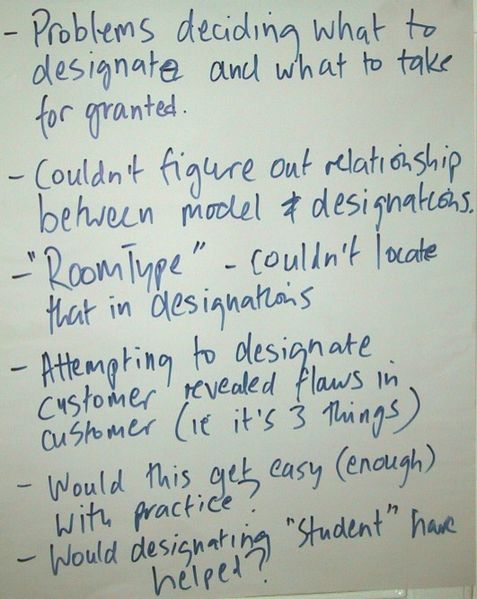 - Problems deciding what to
designate and what to take
for granted.
- Couldn't figure out relationship
between model & designations.
- "RoomType" - couldn't locate
that in designations
- Attempting to designate
customer revealed flaws in
customer (ie it's 3 things)
- Would this get easy (enough)
with practice?
- Would designating "student" have
helped?